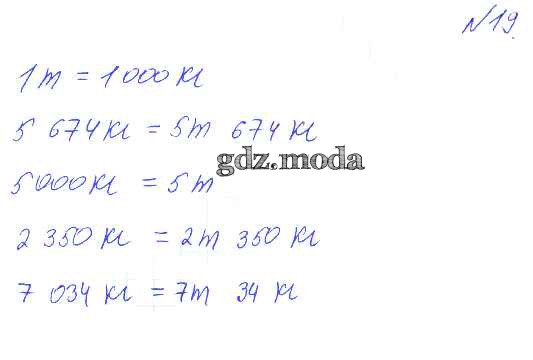 №19.
1 т = 1 000 кг
5 674 кг = 5 т 674 кг
gdz.moda
5 000 кг = 5 т
2 350 кг = 2 т 350 кг
7 034 кг = 7 т 34 кг